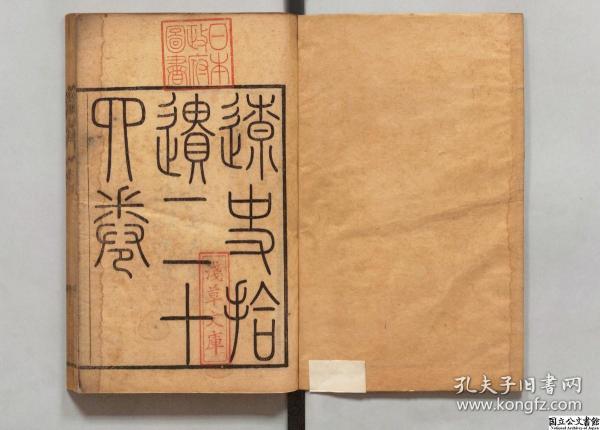 遼史拾
遺二十
四卷
日本
政府
圖書
淺草文庫
孔夫子旧书网
www.kongfz.com
国立公文書館
National Archives of Japan